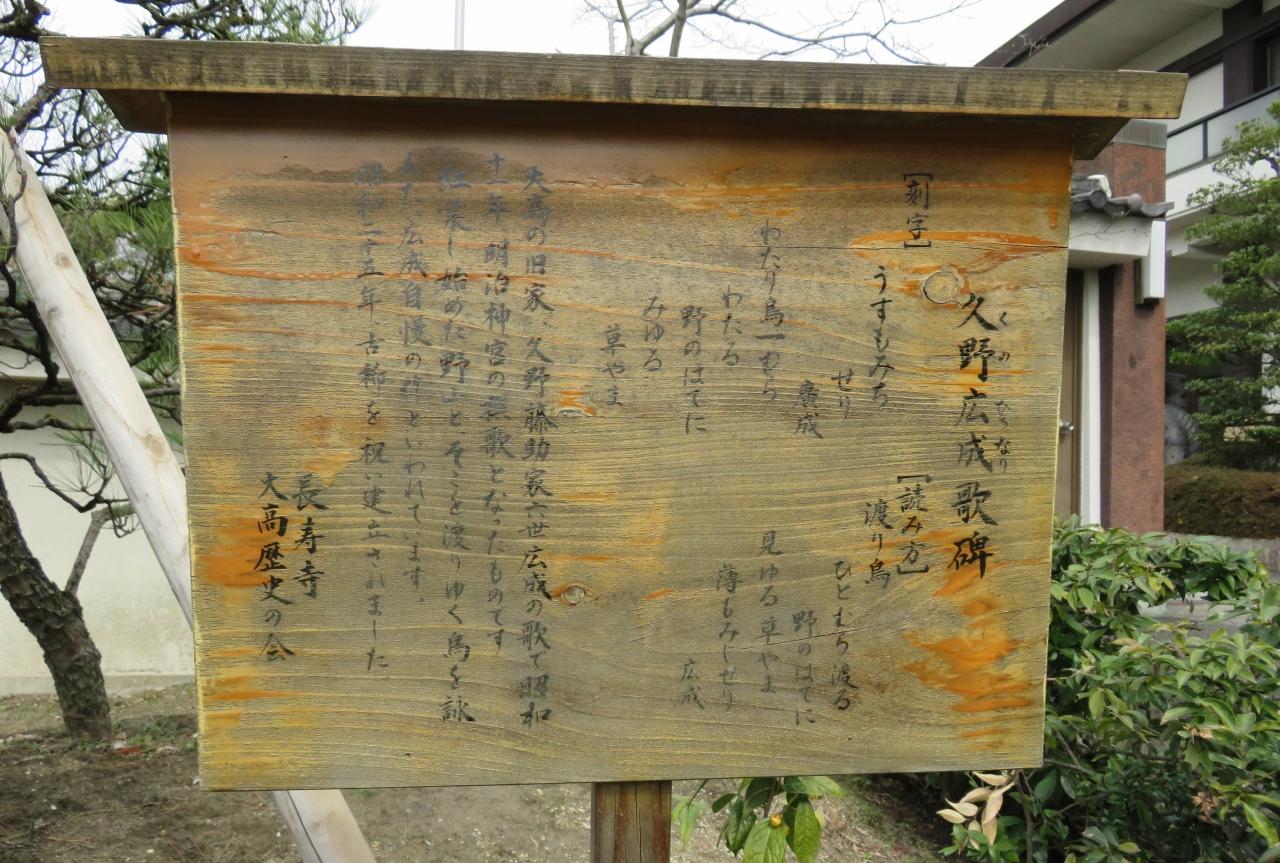 久野広成歌碑
くのひろなり
[刻字]
うすもみち
せり
廣成
わたり鳥一むら
わたる
野のはてに
みゆる
草やま
[読み方]
渡り鳥
ひとむら渡る
野のはてに
見ゆる草やま
薄もみじせり
広成
大高の旧家、久野藤助家六世広成の歌で昭和
十一年明治神宮の献歌となったものです
紅葉し始めた野山と、そこを渡りゆく鳥を詠
んだ広成自慢の作といわれています。
昭和二十五年 古稀を祝い建立されました
長寿寺
大高歴史の会